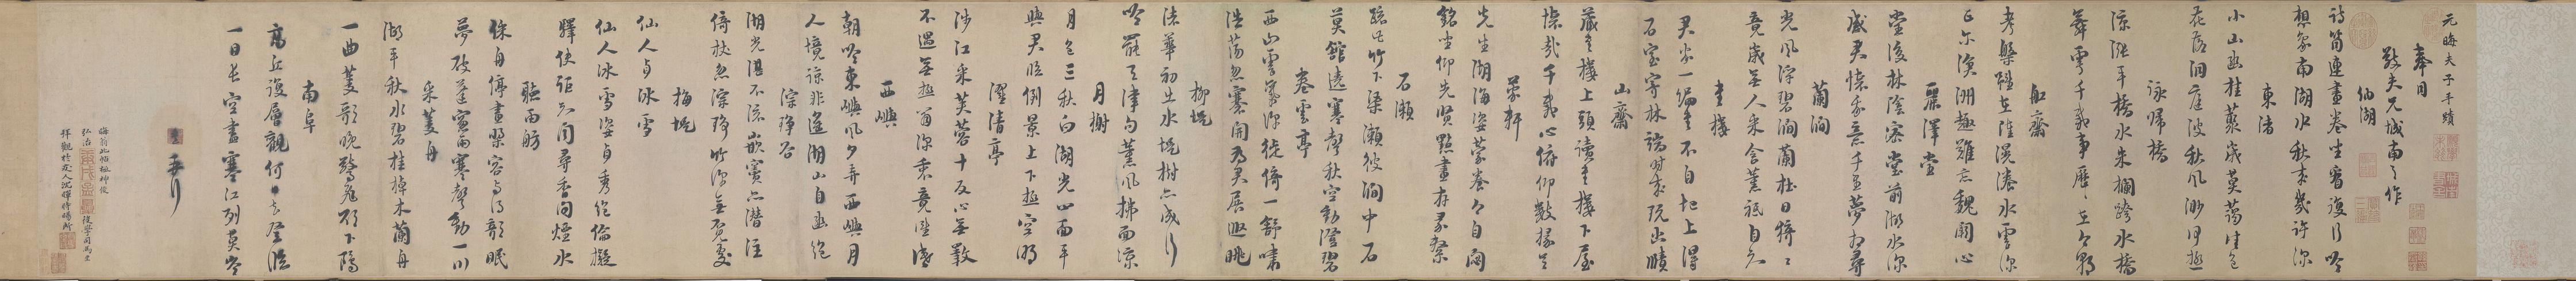 元晦夫子手績
奉同
敬夫兄城南之作
納湖
詩筒連畫卷坐看復行吟
想象南湖水秋來幾許深
東渚
小山幽桂叢歲莫藹佳色
花落洞庭波秋風渺何極
詠歸橋
綠漲平橋水朱欄跨水橋
舞雩千載事歷歷在今朝
船齋
考槃雖在陸滉漾水雲深
正爾滄洲趣難忘魏闕心
麗澤堂
堂後林陰密堂前湖水深
感君懷我意千里夢相尋
蘭澗
光風浮碧澗蘭杜日猗猗
竟歲無人采含薰祗自知
書樓
君家一編書不自圯上得
石室寄林端時來玩幽賾
山齋
藏書樓上頭讀書樓下屋
懷哉千載心俯仰數椽足
蒙軒
先生湖海姿蒙養今自閟
銘坐仰先賢點畫存彖繫
石瀨
疏此竹下渠瀨彼澗中石
莫館遶寒聲秋空動澄碧
卷雲亭
西山雲氣深徙倚一舒嘯
浩蕩忽褰開為君展遐眺
柳堤
渚華初出水堤樹亦成行
吟罷天津句薰風拂面涼
月榭
月色三秋白湖光四面平
與君臨倒景上下極空明
濯清亭
涉江采芙蓉十反心無斁
不遇無極翁深衷竟誰識
西嶼
朝吟東嶼風夕弄西嶼月
人境諒非遙湖山自幽絕
淙琤谷
湖光湛不流嵌竇亦潛注
倚杖忽淙琤竹深無覓處
梅堤
仙人貞冰雪
仙人冰雪姿貞秀絕倫擬
驛使詎知聞尋香問煙水
聽雨舫
綵舟停畫槳容與得欹眠
夢破蓬窗雨寒聲動一川
采菱舟
湖平秋水碧桂棹木蘭舟
一曲菱歌晚驚飛欲下鷗
南阜
高丘復層觀何日去登臨
一目長空盡寒江列莫岑
熹再拜